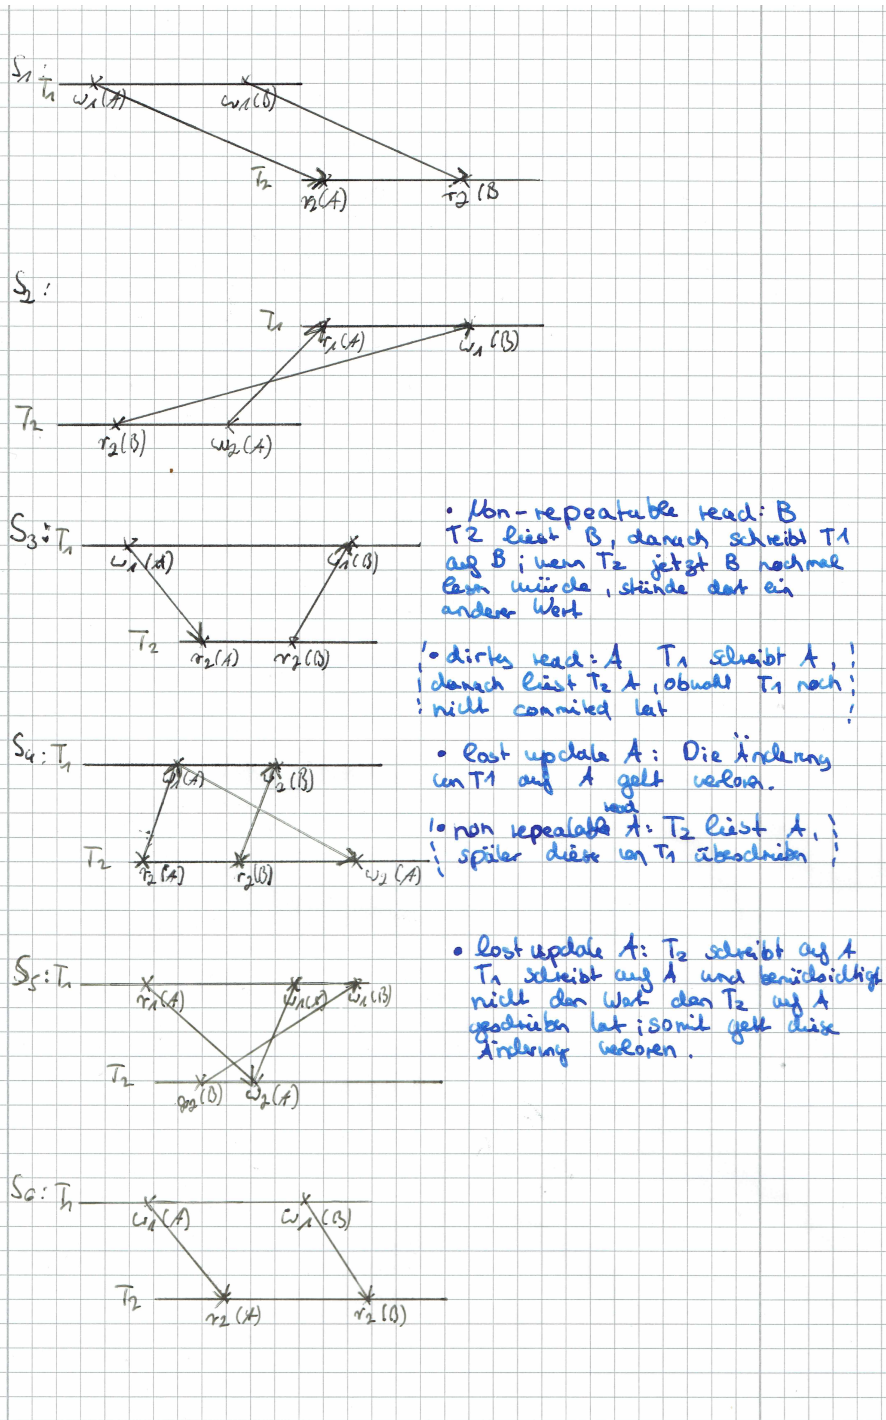 S1: T1
w1(A) w1(B)
T2
r2(A) r2(B
S2:
T1
r1(A) w1(B)
T2
r2(B) w2(A)
S3: T1
w1(A) w1(B)
T2
r2(A) r2(B)
• Non-repeatable read: B
T2 liest B, danach schreibt T1
auf B; wenn T2 jetzt B nochmal
lesen würde, stünde dort ein
anderer Wert
• dirty read: A T1 schreibt A,
danach liest T2 A, obwohl T1 noch
nicht commited hat
S4: T1
w1(A) w2(B)
T2
r2(A) r2(B) w2(A)
• lost update A: Die Änderung
von T1 auf A geht verloren.
• non repeatable read A: T2 liest A,
später diese von T1 überschrieben
S5: T1
r1(A) w1(A) w1(B)
T2
(B) w2(A)
• lost update A: T2 schreibt auf A
T1 schreibt auf A und berücksichtigt
nicht den Wert den T2 auf A
geschrieben hat; somit geht diese
Änderung verloren.
S6: T1
w1(A) w1(B)
T2
r2(A) r2(B)